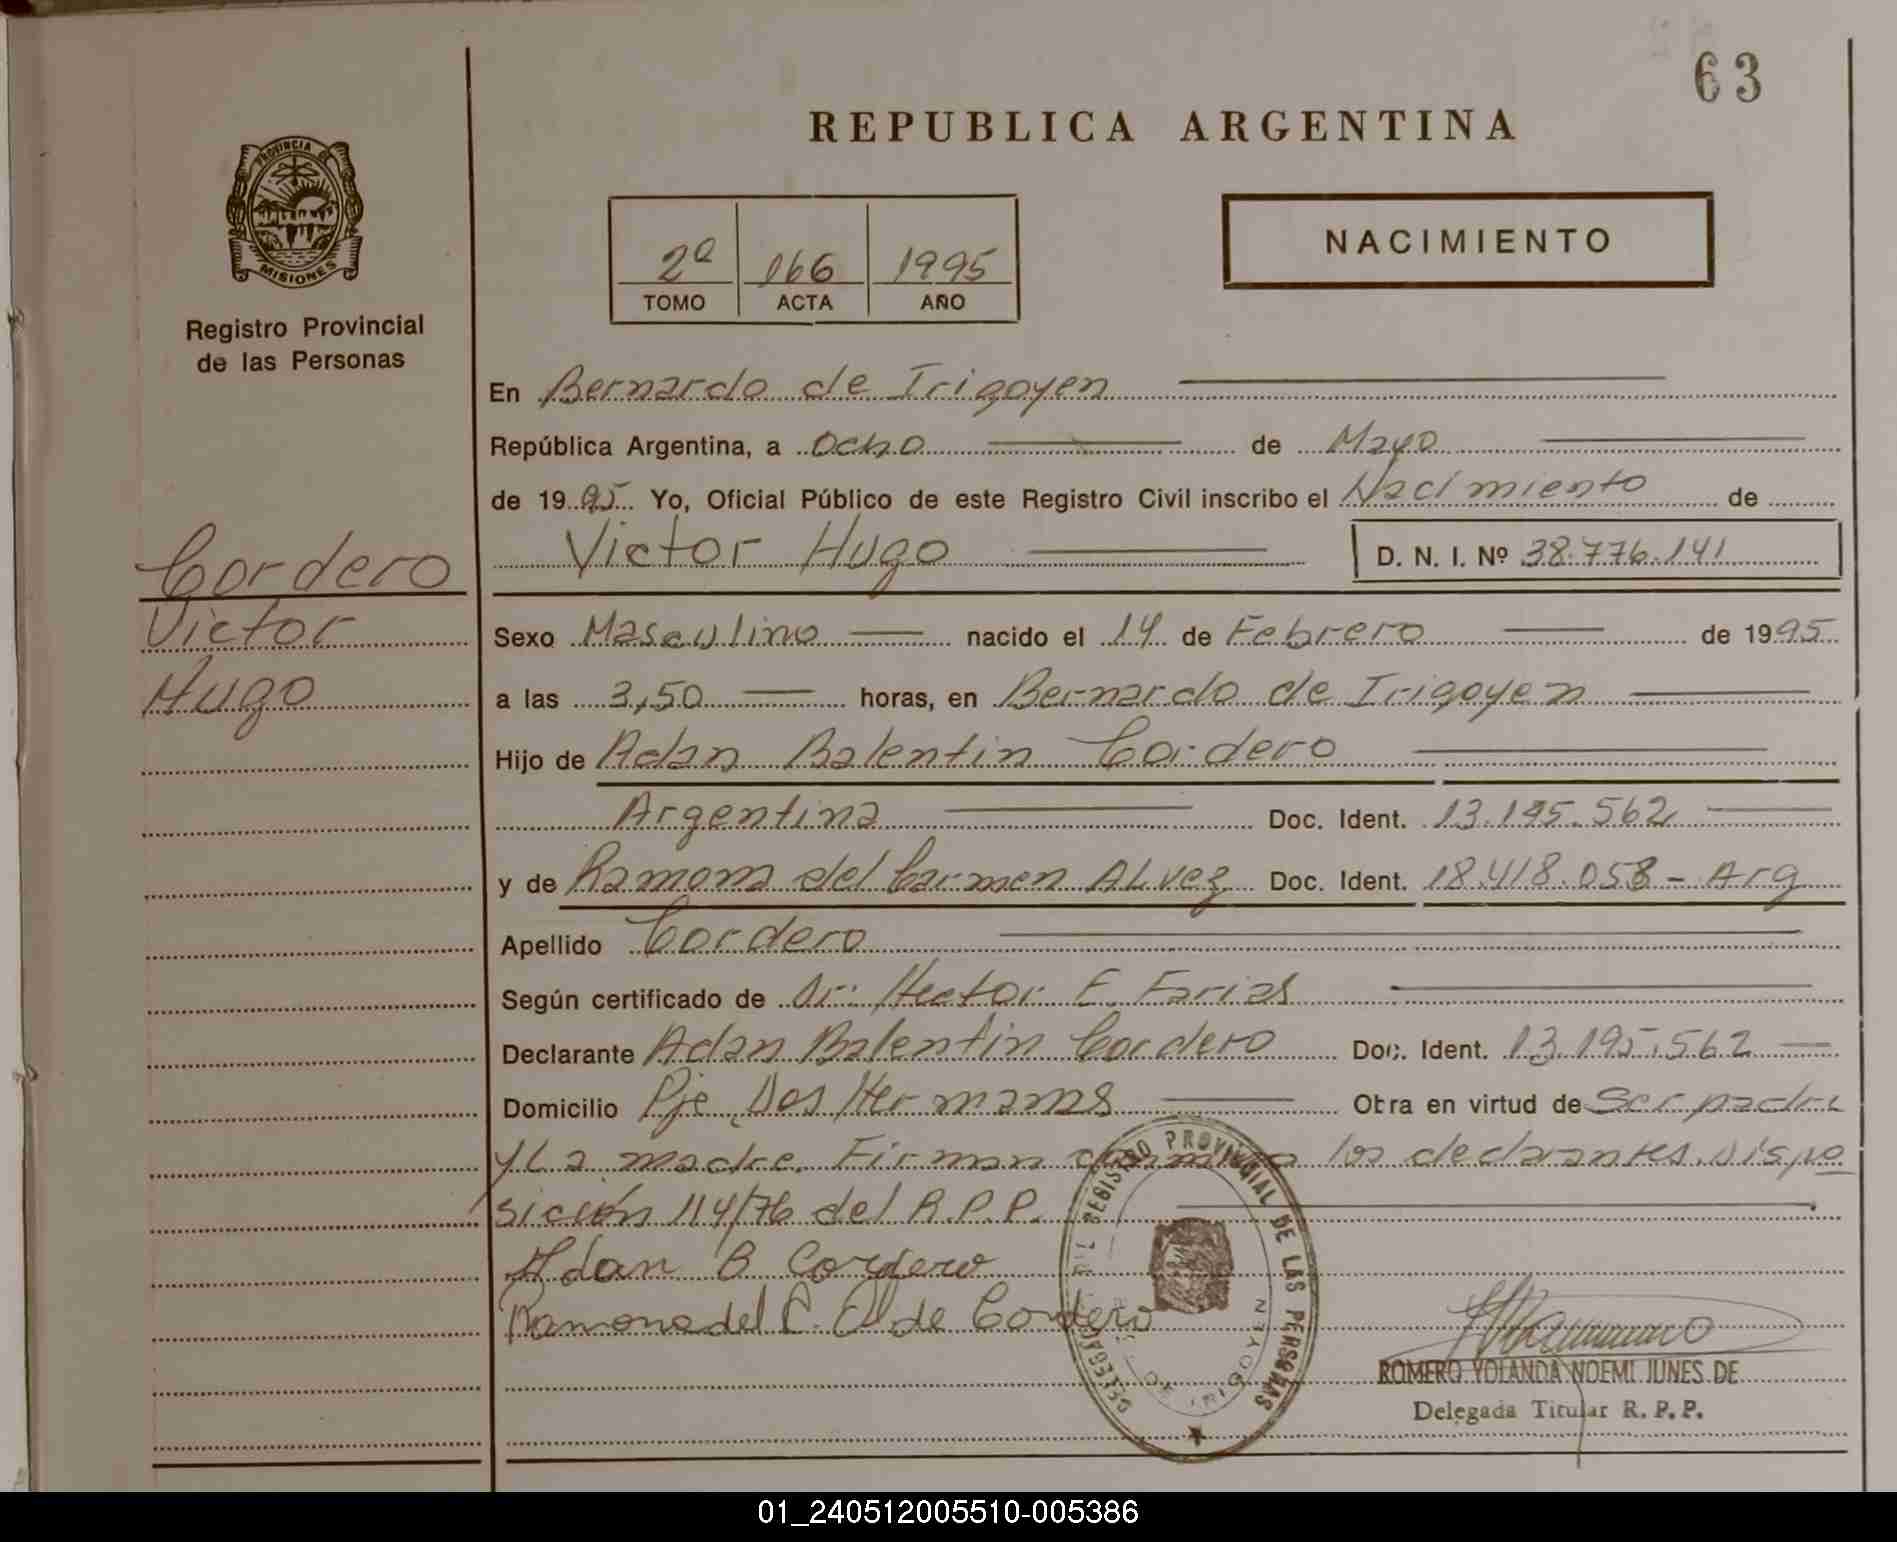 63
REPUBLICA ARGENTINA
PROVINCIA DE
MISIONES
Registro Provincial
de las Personas
2º 166 1995
TOMO ACTA AÑO
NACIMIENTO
En Bernardo de Irigoyen
República Argentina, a Ocho de Mayo
de 1995 Yo, Oficial Público de este Registro Civil inscribo el Nacimiento de
Victor Hugo D. N. I. Nº 38.776.141
Cordero
Victor
Hugo
Sexo Masculino nacido el 14 de Febrero de 1995
a las 3,50 horas, en Bernardo de Irigoyen
Hijo de Adan Balentin Cordero
Argentina Doc. Ident. 13.195.562
y de Ramona del Carmen ALvez Doc. Ident. 18.418.058 - Arg
Apellido Cordero
Según certificado de Dr: Hector E. Farias
Declarante Adan Balentin Cordero Doc. Ident. 13.195.562
Domicilio Pje Dos Hermanas Obra en virtud de Ser padre
y La madre. Firman los declarantes. Dispo
sición 114/76 del R.P.P.
Adan B Cordero
Ramona del C. A de Cordero
REGISTRO PROVINCIAL DE LAS PERSONAS
DE IRIGOYEN
ROMERO YOLANDA NOEMI JUNES DE
Delegada Titular R. P. P.
01_240512005510-005386